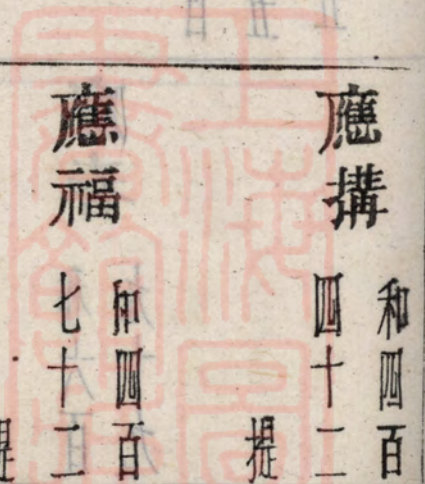 應搆
和四百
四十二
提
應福
和四百
七十二
提